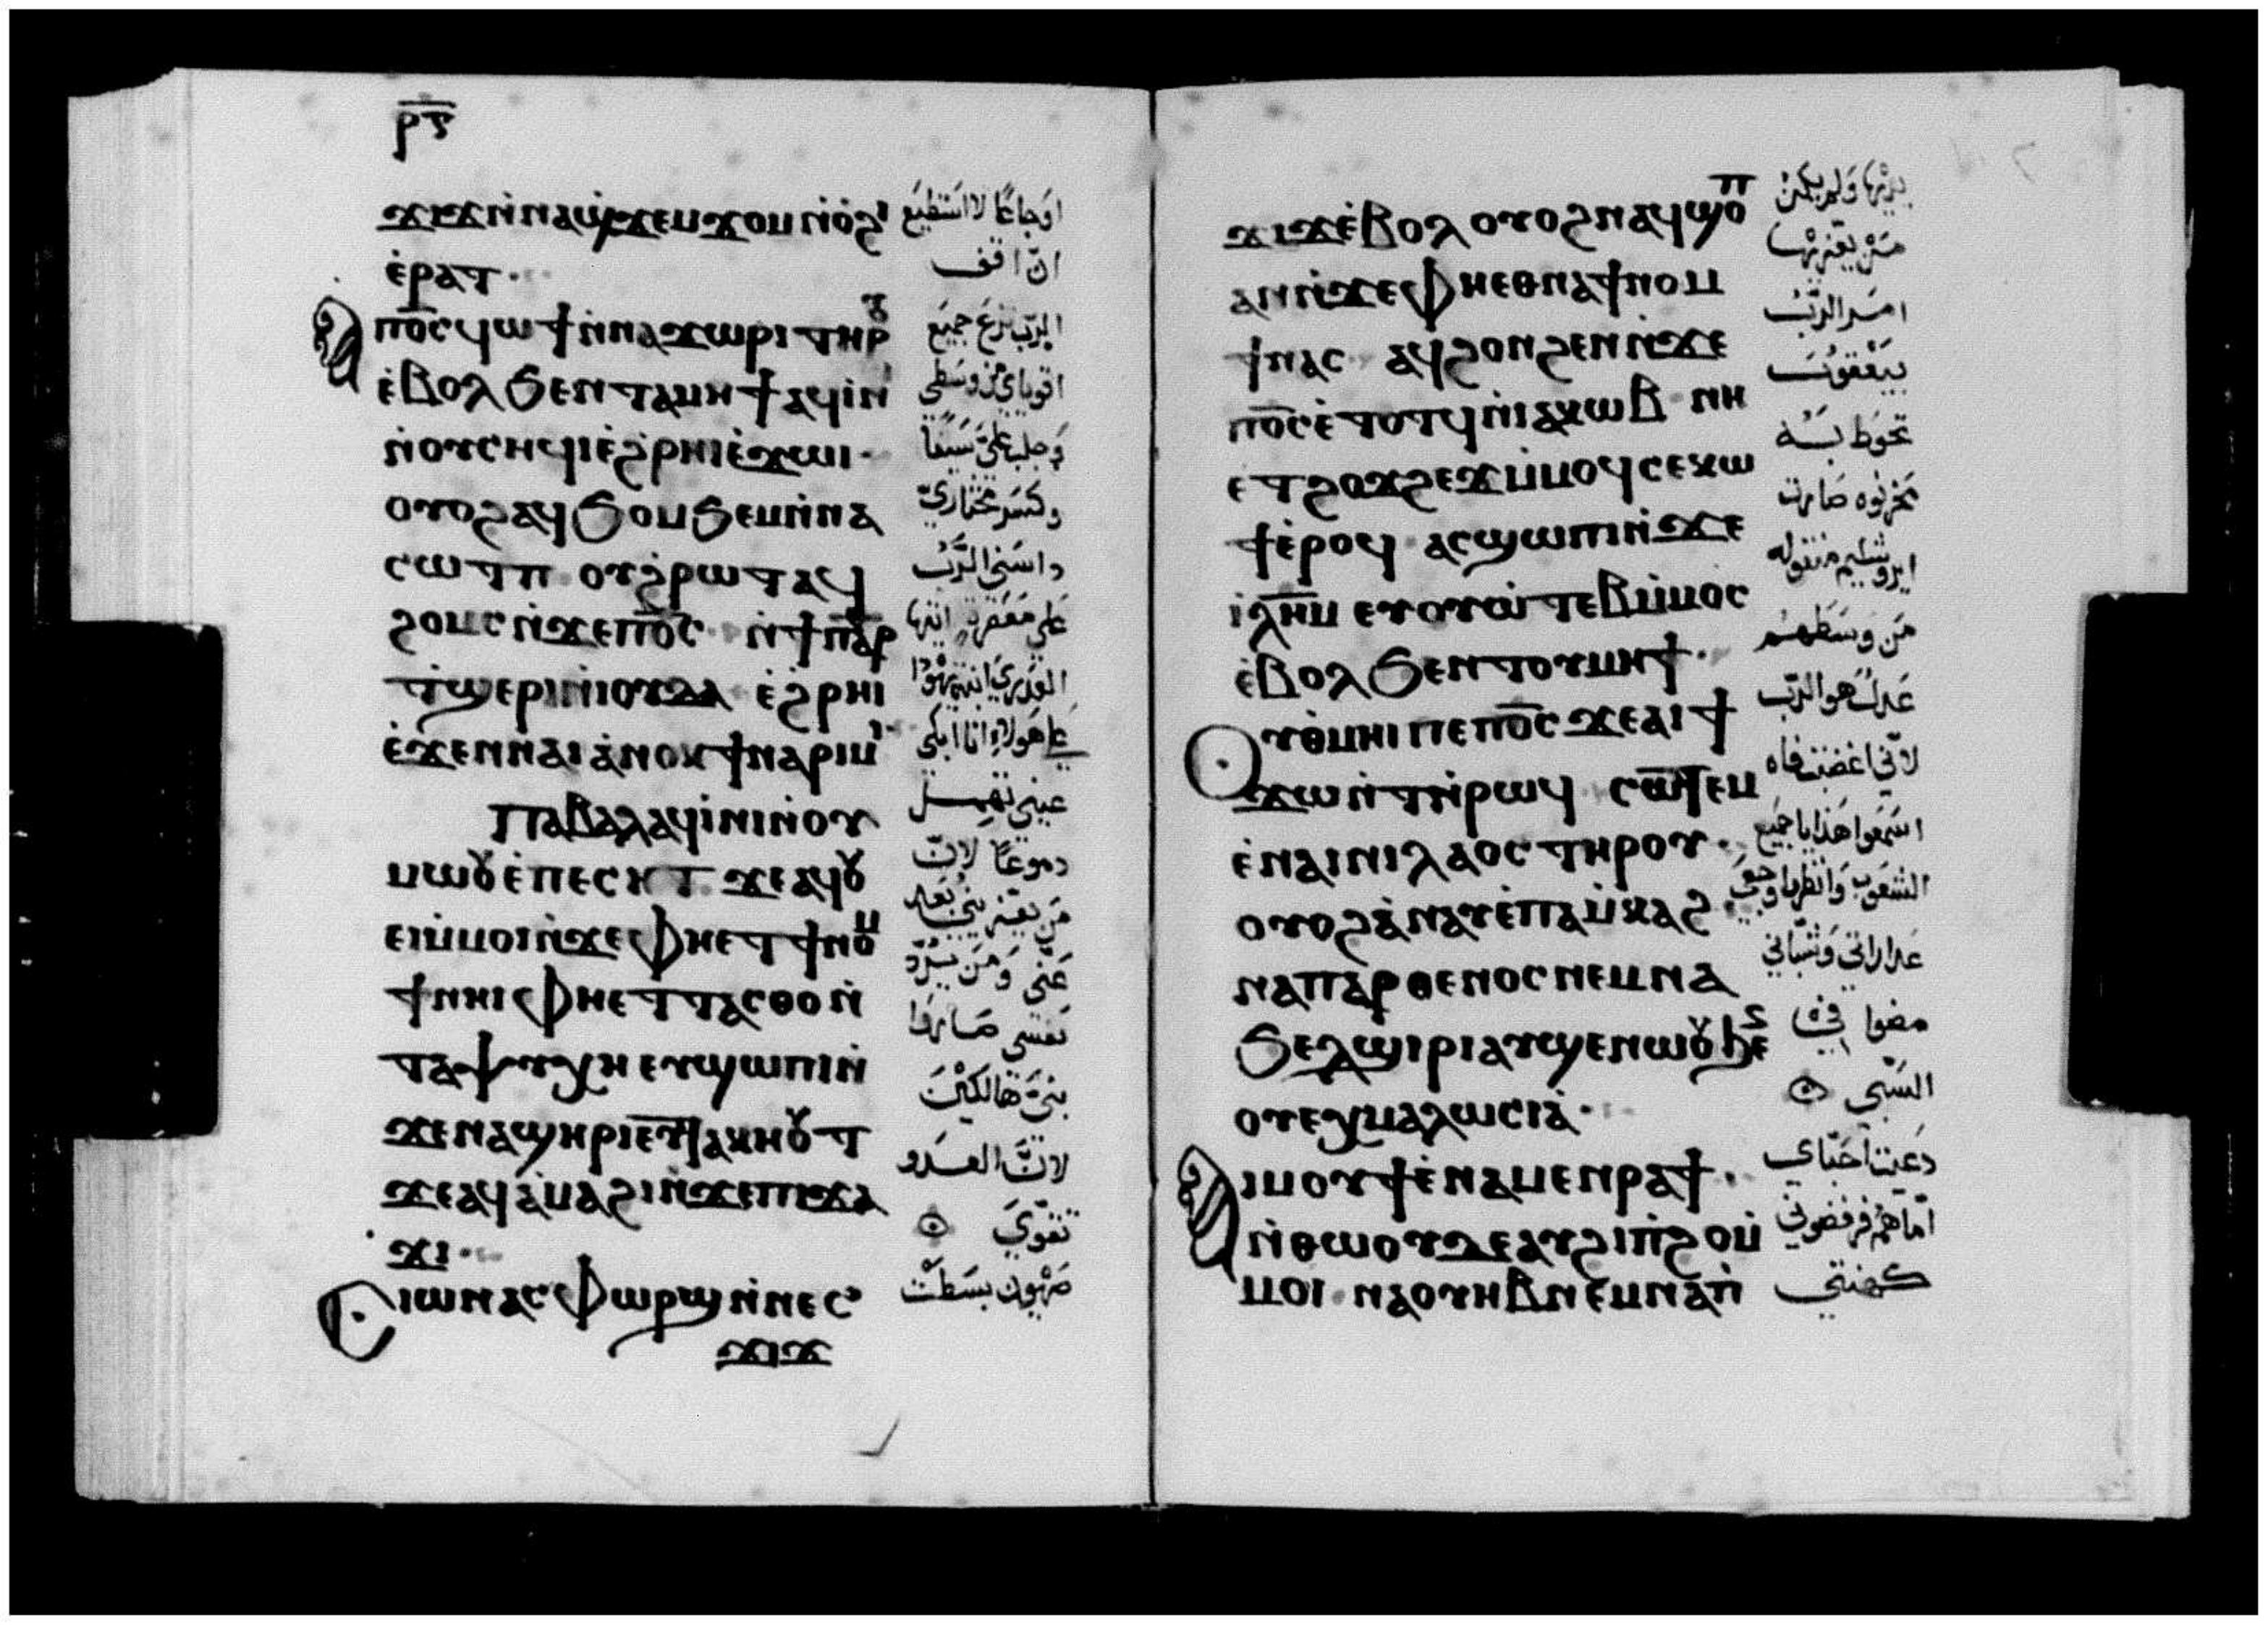 ⲣ̅ⲋ̅
ϫⲓϫ ⲛ̀ⲛⲁϣϫⲉⲙϫⲟⲙ ⲛ̀ⲟ̀ϩⲓ
ⲉ̀ⲣⲁⲧ·
ⲡ̅ⲟ̅ⲥ̅ ϥⲱϯ ⲛ̀ⲛⲁϫⲱⲣⲓ ⲧⲏⲣⲟⲩ
ⲉ̀ⲃⲟⲗ ϧⲉⲛ ⲧⲁⲙⲏϯ ⲁϥⲓ̀ⲛⲓ
ⲛ̀ⲟⲩⲥⲏϥⲓ ⲉ̀ϩⲣⲏⲓ ⲉ̀ϫⲱⲓ·
ⲟⲩⲟϩ ⲁϥϧⲟⲙϧⲉⲙ ⲛ̀ⲛⲁ
ⲥⲱⲧⲡ ⲟⲩϩⲣⲱⲧ ⲁϥ
ϩⲟⲙⲥ ⲛ̀ϫⲉ ⲡ̅ⲟ̅ⲥ̅ ⲛ̀ϯⲡⲁⲣ
ⲧ̀ϣⲉⲣⲓ ⲛ̀ⲓⲟⲩⲇⲁ ⲉ̀ϩⲣⲏⲓ
ⲉ̀ϫⲉⲛ ⲛⲁⲓ ⲁ̀ⲛⲟⲕ ϯⲛⲁⲣⲓⲙⲓ
ⲡⲁⲃⲁⲗ ⲁϥⲓ̀ⲛⲓ ⲛ̀ⲟⲩ
ⲙⲱⲟⲩ ⲉ̀ⲡⲉⲥⲏⲧ ϫⲉ ⲁϥⲟⲩ
ⲉⲓ ⲙ̀ⲙⲟⲓ ⲛ̀ϫⲉ ⲫⲏⲉⲧϯⲛⲟⲙ
ϯ ⲛⲏⲓ ⲫⲏⲉⲧⲧⲁⲥⲑⲟ ⲛ̀
ⲧⲁⲯⲩⲭⲏ ⲉⲩϣⲱⲡⲓ ⲛ̀
ϫⲉ ⲛⲁϣⲏⲣⲓ ⲉⲩⲧⲁⲕⲏⲟⲩⲧ
ϫⲉ ⲁϥⲁ̀ⲙⲁϩⲓ ⲛ̀ϫⲉ ⲡⲓϫⲁ
ϫⲓ·
Ⲥⲓⲱⲛ ⲁⲥⲫⲱⲣϣ ⲛ̀ⲛⲉⲥ
ϫⲓϫ
اوجاعًا لا استطيع
ان اقف
الرب نزع جميع
اقوياي من وسطي
وجلب عليّ سيفًا
وكسر مختاريّ
داسني الرب
على معصرة ايتها
العذري ابنة يهودا
على هولاء انا ابكي
عيني تهمل
دموعًا لان
من يعزيني بعد
عنّي ومن يردّ
نفسي صاروا
بنيّ هالكين
لانّ العدو
تقوّي
صهيون بسطت
ϫⲓϫ ⲉ̀ⲃⲟⲗ ⲟⲩⲟϩ ⲛⲁϥϣⲟⲡ
ⲁⲛ ⲛ̀ϫⲉ ⲫⲏⲉⲑⲛⲁϯⲛⲟⲙ
ϯ ⲛⲁⲥ ⲁϥϩⲟⲛϩⲉⲛ ⲛ̀ϫⲉ
ⲡ̅ⲟ̅ⲥ̅ ⲉ̀ⲧⲟⲧϥ ⲛ̀ⲓⲁⲕⲱⲃ ⲛⲏ
ⲉⲧϩⲟϫϩⲉϫ ⲙ̀ⲙⲟϥ ⲥⲉⲕⲱ
ϯ ⲉ̀ⲣⲟϥ ⲁⲥϣⲱⲡⲓ ⲛ̀ϫⲉ
ⲓ̅ⲗ̅ⲏ̅ⲙ̅ ⲉⲩⲟⲩⲱⲧⲉⲃ ⲙ̀ⲙⲟⲥ
ⲉ̀ⲃⲟⲗ ϧⲉⲛ ⲧⲟⲩⲙⲏϯ·
Ⲟⲩⲑ̀ⲙⲏⲓ ⲡⲉ ⲡ̅ⲟ̅ⲥ̅ ϫⲉ ⲁⲓϯ
ϫⲱⲛⲧ ⲛ̀ⲣⲱϥ ⲥⲱⲧⲉⲙ
ⲉ̀ⲛⲁⲓ ⲛⲓⲗⲁⲟⲥ ⲧⲏⲣⲟⲩ·
ⲟⲩⲟϩ ⲁ̀ⲛⲁⲩ ⲉ̀ⲡⲁⲙ̀ⲕⲁϩ
ⲛⲁⲡⲁⲣⲑⲉⲛⲟⲥ ⲛⲉⲙ ⲛⲁ
ϧⲉⲗϣⲓⲣⲓ ⲁⲩϣⲉⲛⲱⲟⲩ ϧⲉⲛ
ⲟⲩⲉⲭⲙⲁⲗⲱⲥⲓⲁ̀·
Ⲁⲓⲙⲟⲩϯ ⲉ̀ⲛⲁⲙⲉⲛⲣⲁϯ·
ⲛ̀ⲑⲱⲟⲩ ⲇⲉ ⲁⲩϩⲓⲡ̀ϩⲟ ⲙ̀
ⲙⲟⲓ ⲛⲁⲟⲩⲏⲃ ⲛⲉⲙ ⲛⲁⲡ̀
يديها ولم يكن
من يعزيها
امر الرب
بيعقوب
تحوط به
يحزنوه صارت
ايروشليم منتقله
من وسطهم
عدل هو الرب
لانّي اغضبت فاه
اسمعوا هذا يا جميع
الشعوب وانظروا وجعي
عذاراتي وشبّاني
مضوا في
السبي
دعيت احبّاي
امّا هم فرفضوني
كهنتي